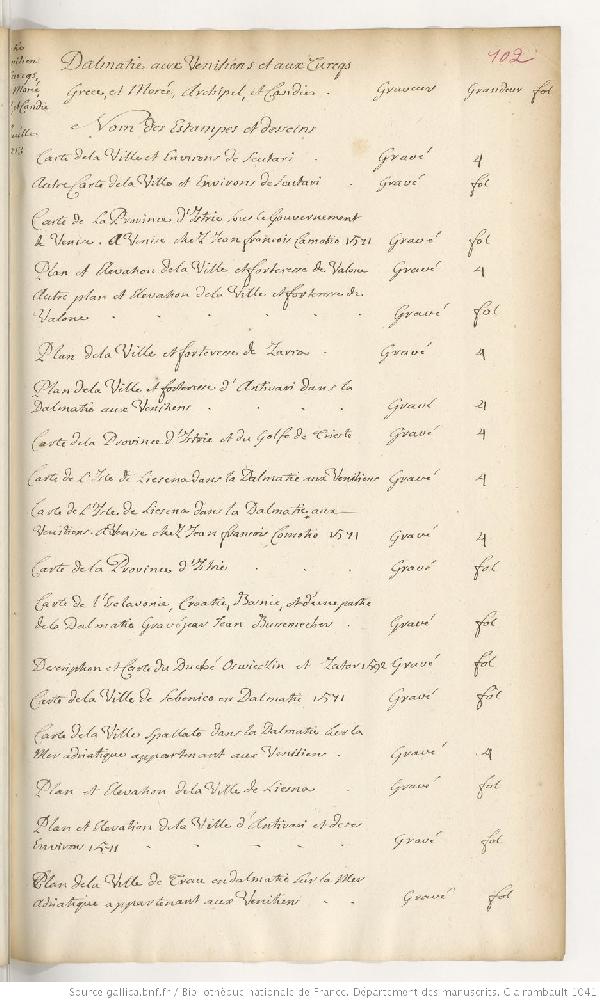 102
Dalmatie aux Venitiens et aux Turcqs
Grece, et Morée, Archipel, et Candie . Graveurs Grandeur fol
Nom des Estampes et desseins
Carte de la Ville et Environs de Scutari . Gravé 4
Autre Carte de la Ville et Environs de Scutari . Gravé fol
Carte de la Province d'Istrie sous le Gouvernement
de Venise . A Venise chez Jean françois Camotio 1571 Gravé fol
Plan et Elevation de la Ville et forteresse de Valone Gravé 4
Autre plan et Elevation de la Ville et forteresse de
Valone . . . . Gravé fol
Plan de la Ville et forteresse de Zarra . Gravé 4
Plan de la Ville et forteresse d'Antivari dans la
Dalmatie aux Venitiens . . . . Gravé 4
Carte de la Province d'Istrie et du Golfe de Trieste Gravé 4
Carte de L'Isle de Liesena dans la Dalmatie aux Venitiens Gravé 4
Carte de L'Isle de Liesena dans la Dalmatie aux
Venitiens . A Venise chez Jean françois Comotio 1571 Gravé 4
Carte de la Province d'Istrie . . . Gravé fol
Carte de l'Esclavonie, Croatie, Bosnie, et d'une partie
de la Dalmatie Gravé par Jean Bussemecher . Gravé fol
Description et Carte du Duché Oswieczin et Zator 1592 Gravé fol
Carte de la Ville de Sebenico en Dalmatie 1571 Gravé fol
Carte de la Ville Spallato dans la Dalmatie sur la
Mer adriatique appartenant aux Venitiens . Gravé 4
Plan et Elevation de la Ville de Liesna . Gravé fol
Plan et Elevation de la Ville d'Antivari et de ses
Environs 1571 . . . . Gravé fol
Plan de la Ville de Trau en dalmatie sur la Mer
Adriatique appartenant aux Venitiens . . Gravé fol
Source gallica.bnf.fr / Bibliothèque nationale de France. Département des manuscrits. Clairambault 1041